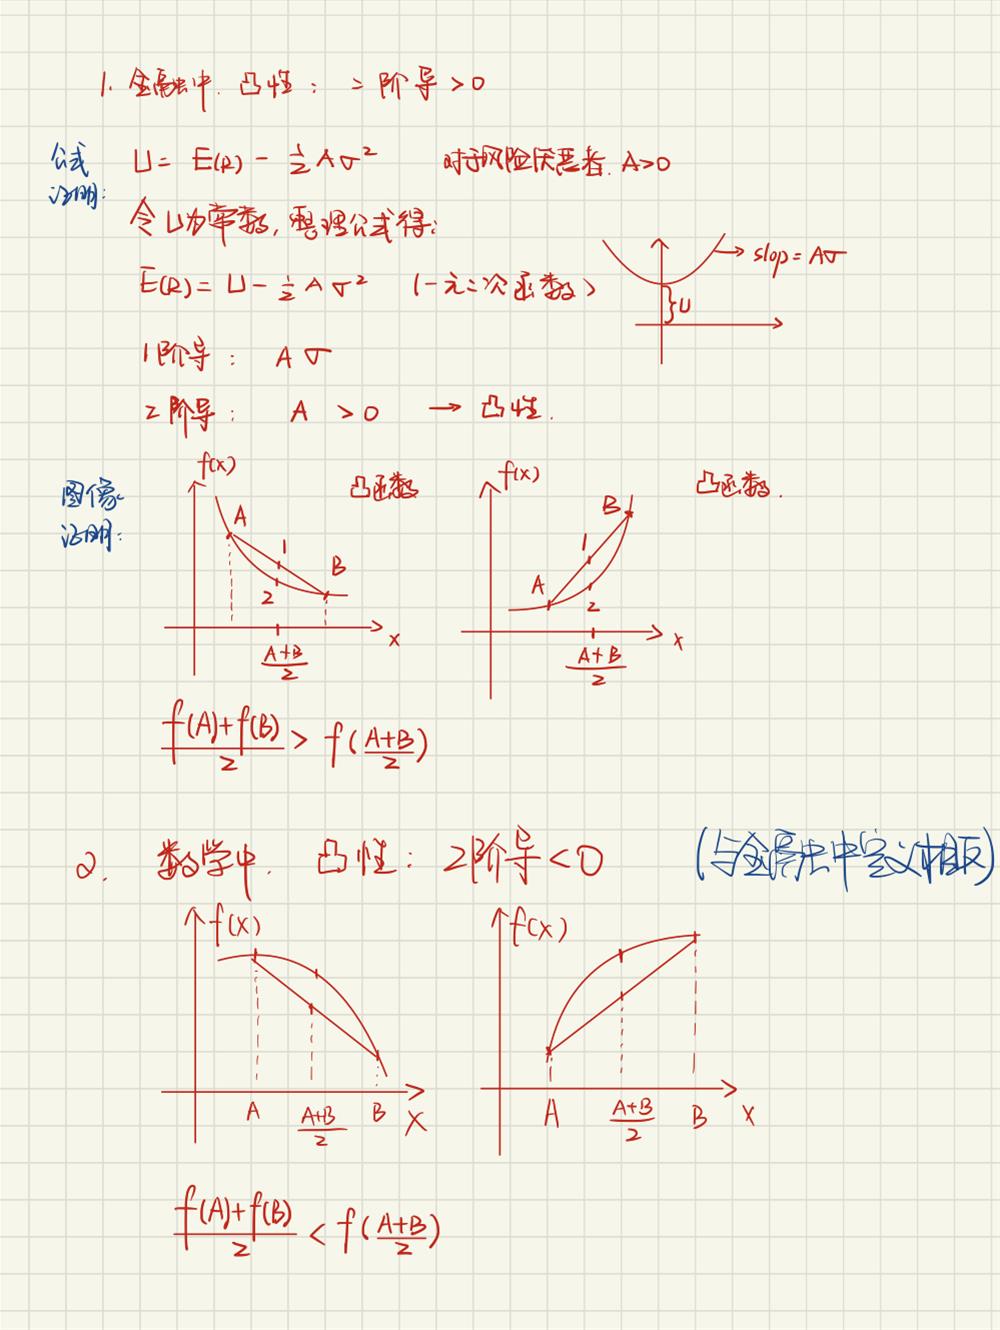 1. 金融中. 凸性: 二阶导>0
公式证明:
U = E(R) - ½Aσ² 对于风险厌恶者. A>0
令U为常数, 整理公式得:
E(R) = U - ½Aσ² (一元二次函数)
slop = Aσ
U
1阶导: Aσ
2阶导: A >0 → 凸性.
图像证明:
f(x) 凸函数
A
1
B
2
x
(A+B)/2
f(x) 凸函数.
B
1
A
2
x
(A+B)/2
(f(A)+f(B))/2 > f((A+B)/2)
2. 数学中. 凸性: 2阶导<0 (与金融中定义相反)
f(x)
A (A+B)/2 B X
f(x)
A (A+B)/2 B X
(f(A)+f(B))/2 < f((A+B)/2)